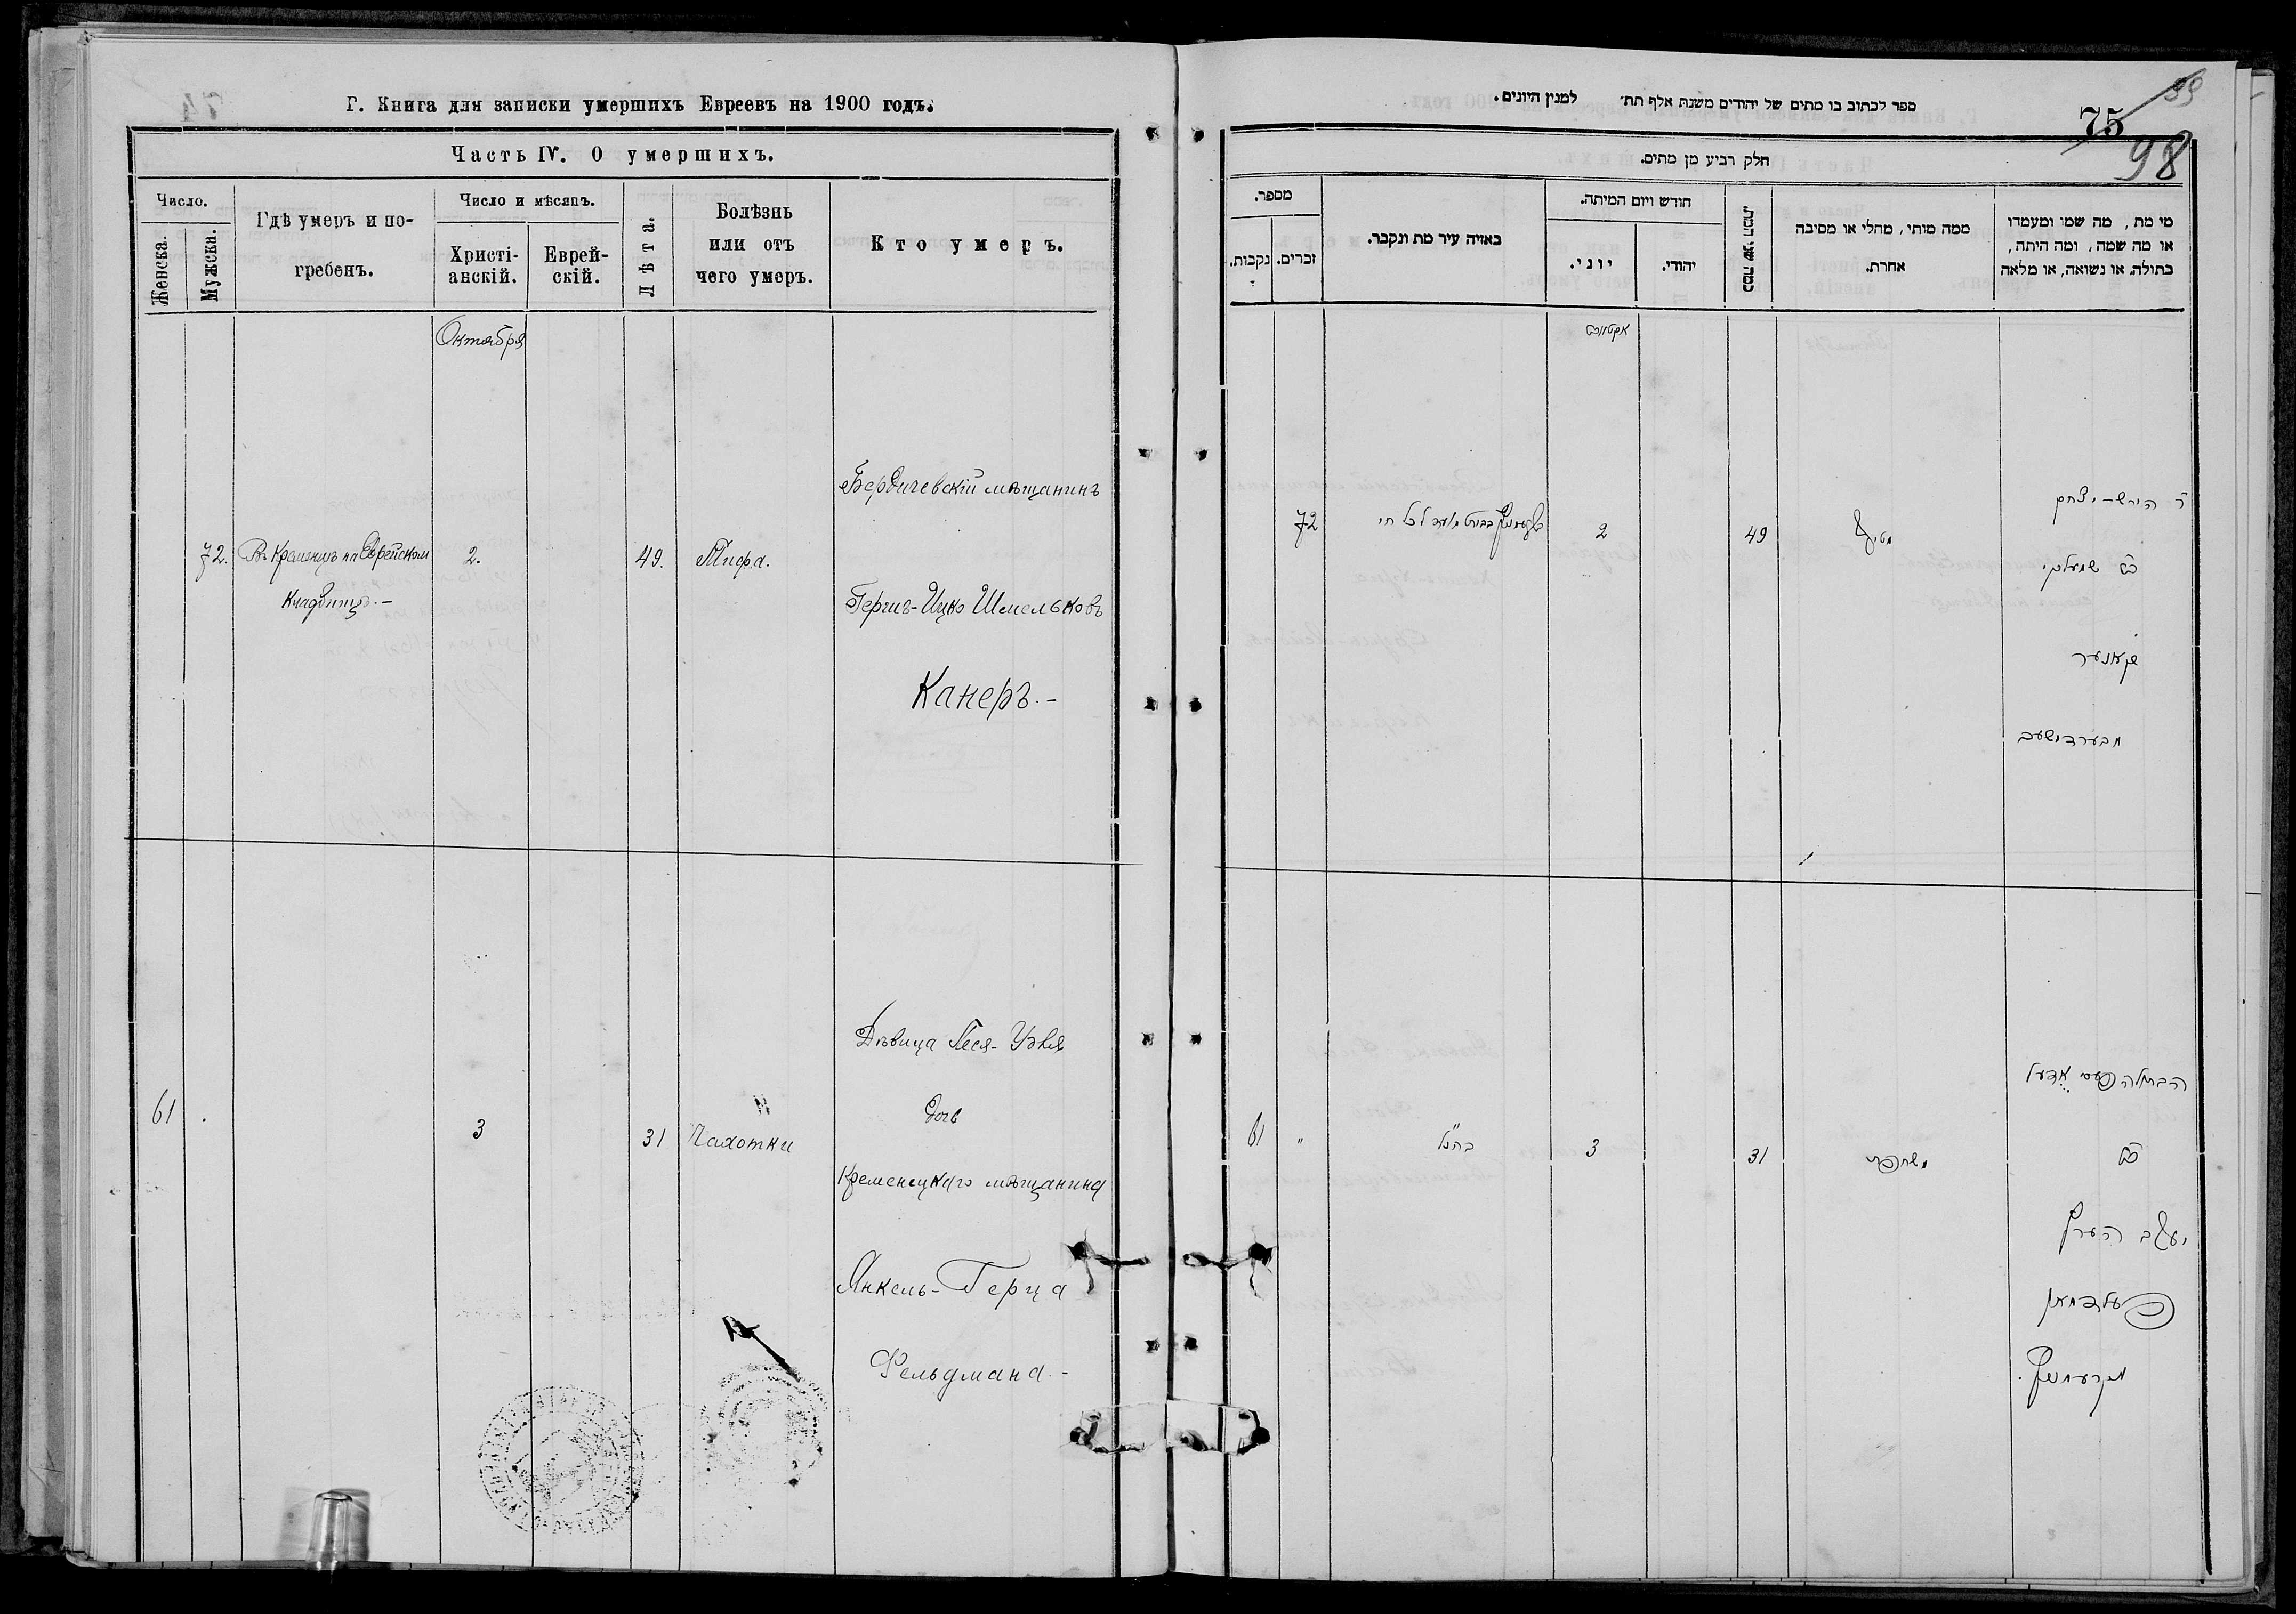 Г. Книга для записки умершихъ Евреевъ на 1900 годъ.
Часть IV. О умершихъ.
Число.
Женска.
Мужска.
Гдѣ умеръ и по-
гребенъ.
Число и мѣсяцъ.
Христі-
анскій.
Еврей-
скій.
Лѣта.
Болѣзнь
или отъ
чего умеръ.
Кто умеръ.
Октября
72.
Въ Кременцѣ на Еврейском
Кладбищѣ.-
2.
49.
Тифа.
Бердичевскій мѣщанинъ
Гершъ-Ицко Шмельковъ
Канеръ.-
61
3
31
Чахотки
Дѣвица Песя-
дочь
Кременецкаго мѣщанина
Янкель-Герца
Фельдмана.-
ספר לכתוב בו מתים של יהודים משנת אלף תת׳ למנין היונים.
99
75
98
חלק רביע מן מתים.
מספר.
נקבות.
זכרים.
באזיה עיר מת ונקבר.
חודש ויום המיתה.
יוני.
יהודי.
כמה שני המת.
ממה מותי, מחלי או מסיבה
אחרת.
מי מת, מה שמו ומעמדו
או מה שמה, ומה היתה,
בתולה, או נשואה, או מלאה
72
2
49
ר הירש-יצחק
קאנער
61
"
בהנ"ל
3
31
הבתולה פעסי אדעל
יעקב הערץ
פעלדמאן